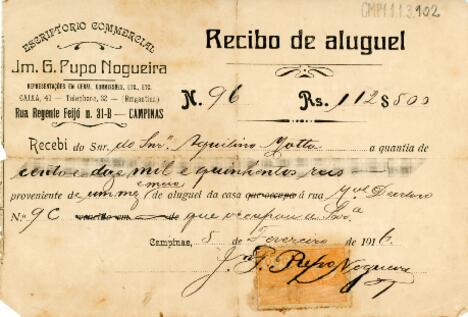 CMP1.1.3.102
ESCRIPTORIO COMMERCIAL
Jm. G. Pupo Nogueira
REPRESENTAÇÕES EM GERAL, COMMISSÕES, ETC., ETC.
CAIXA, 41 - Telephone, 32 - (Bragantina)
Rua Regente Feijó n. 31-B - CAMPINAS
Recibo de aluguel
N. 96 Rs. 112$500
Recebi do Snr. do Snr. Aquilino Motta a quantia de
cento e doze mil e quinhentos reis
proveniente de um mez e meio de aluguel da casa que occupa á rua Mal Deodoro
N.º 90 que occupou a Snra
Campinas, 5 de Fevereiro de 1916
Jm G. Pupo Nogueira